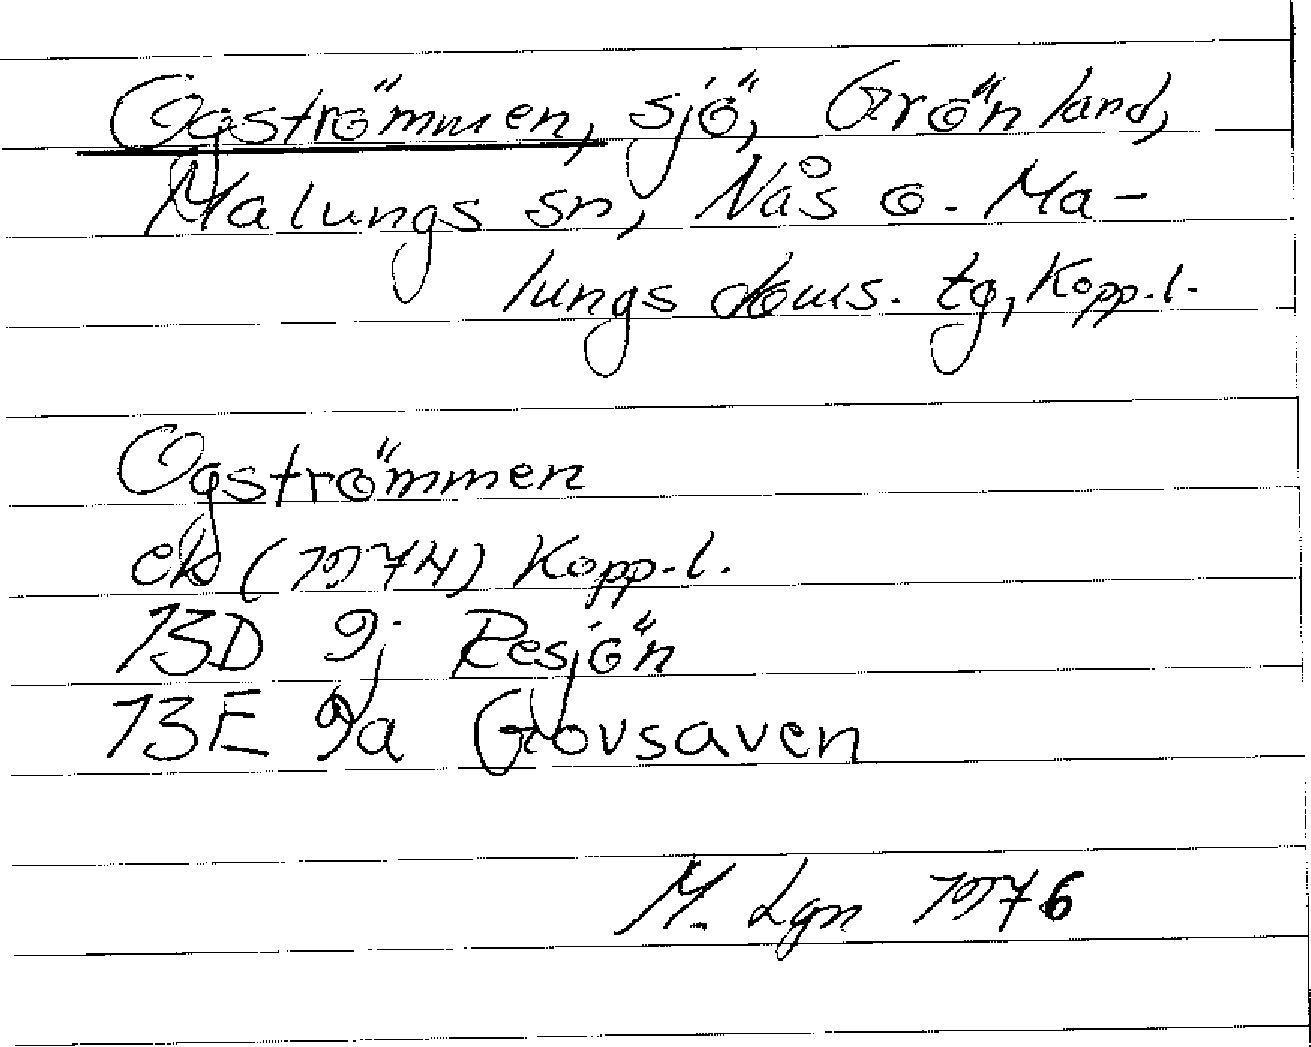 Ogströmmen, sjö, Grönland,
Malungs sn, Nås o. Ma-
lungs doms. tg, Kopp.l.
Ogströmmen
ek (1974) Kopp.l.
13D 9j Resjön
13E 9a Glovsaven
M. Lgn 1976